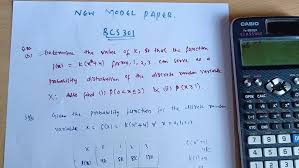 NEW MODEL PAPER.
BCS301
Determine the value of K, so that the function
f(x) = K(x²+4) for x=0, 1, 2, 3, can serve as a
probability distribution of the discrete random variable
X. Also find i) P(0<x≤2) & ii) P(x≥1)
Given the probability function for the discrete random
variable X is f(x) = K(x²+4) for x=0,1,2,3,
x 0 1 2 3
4K 5K 8K 13K
CASIO